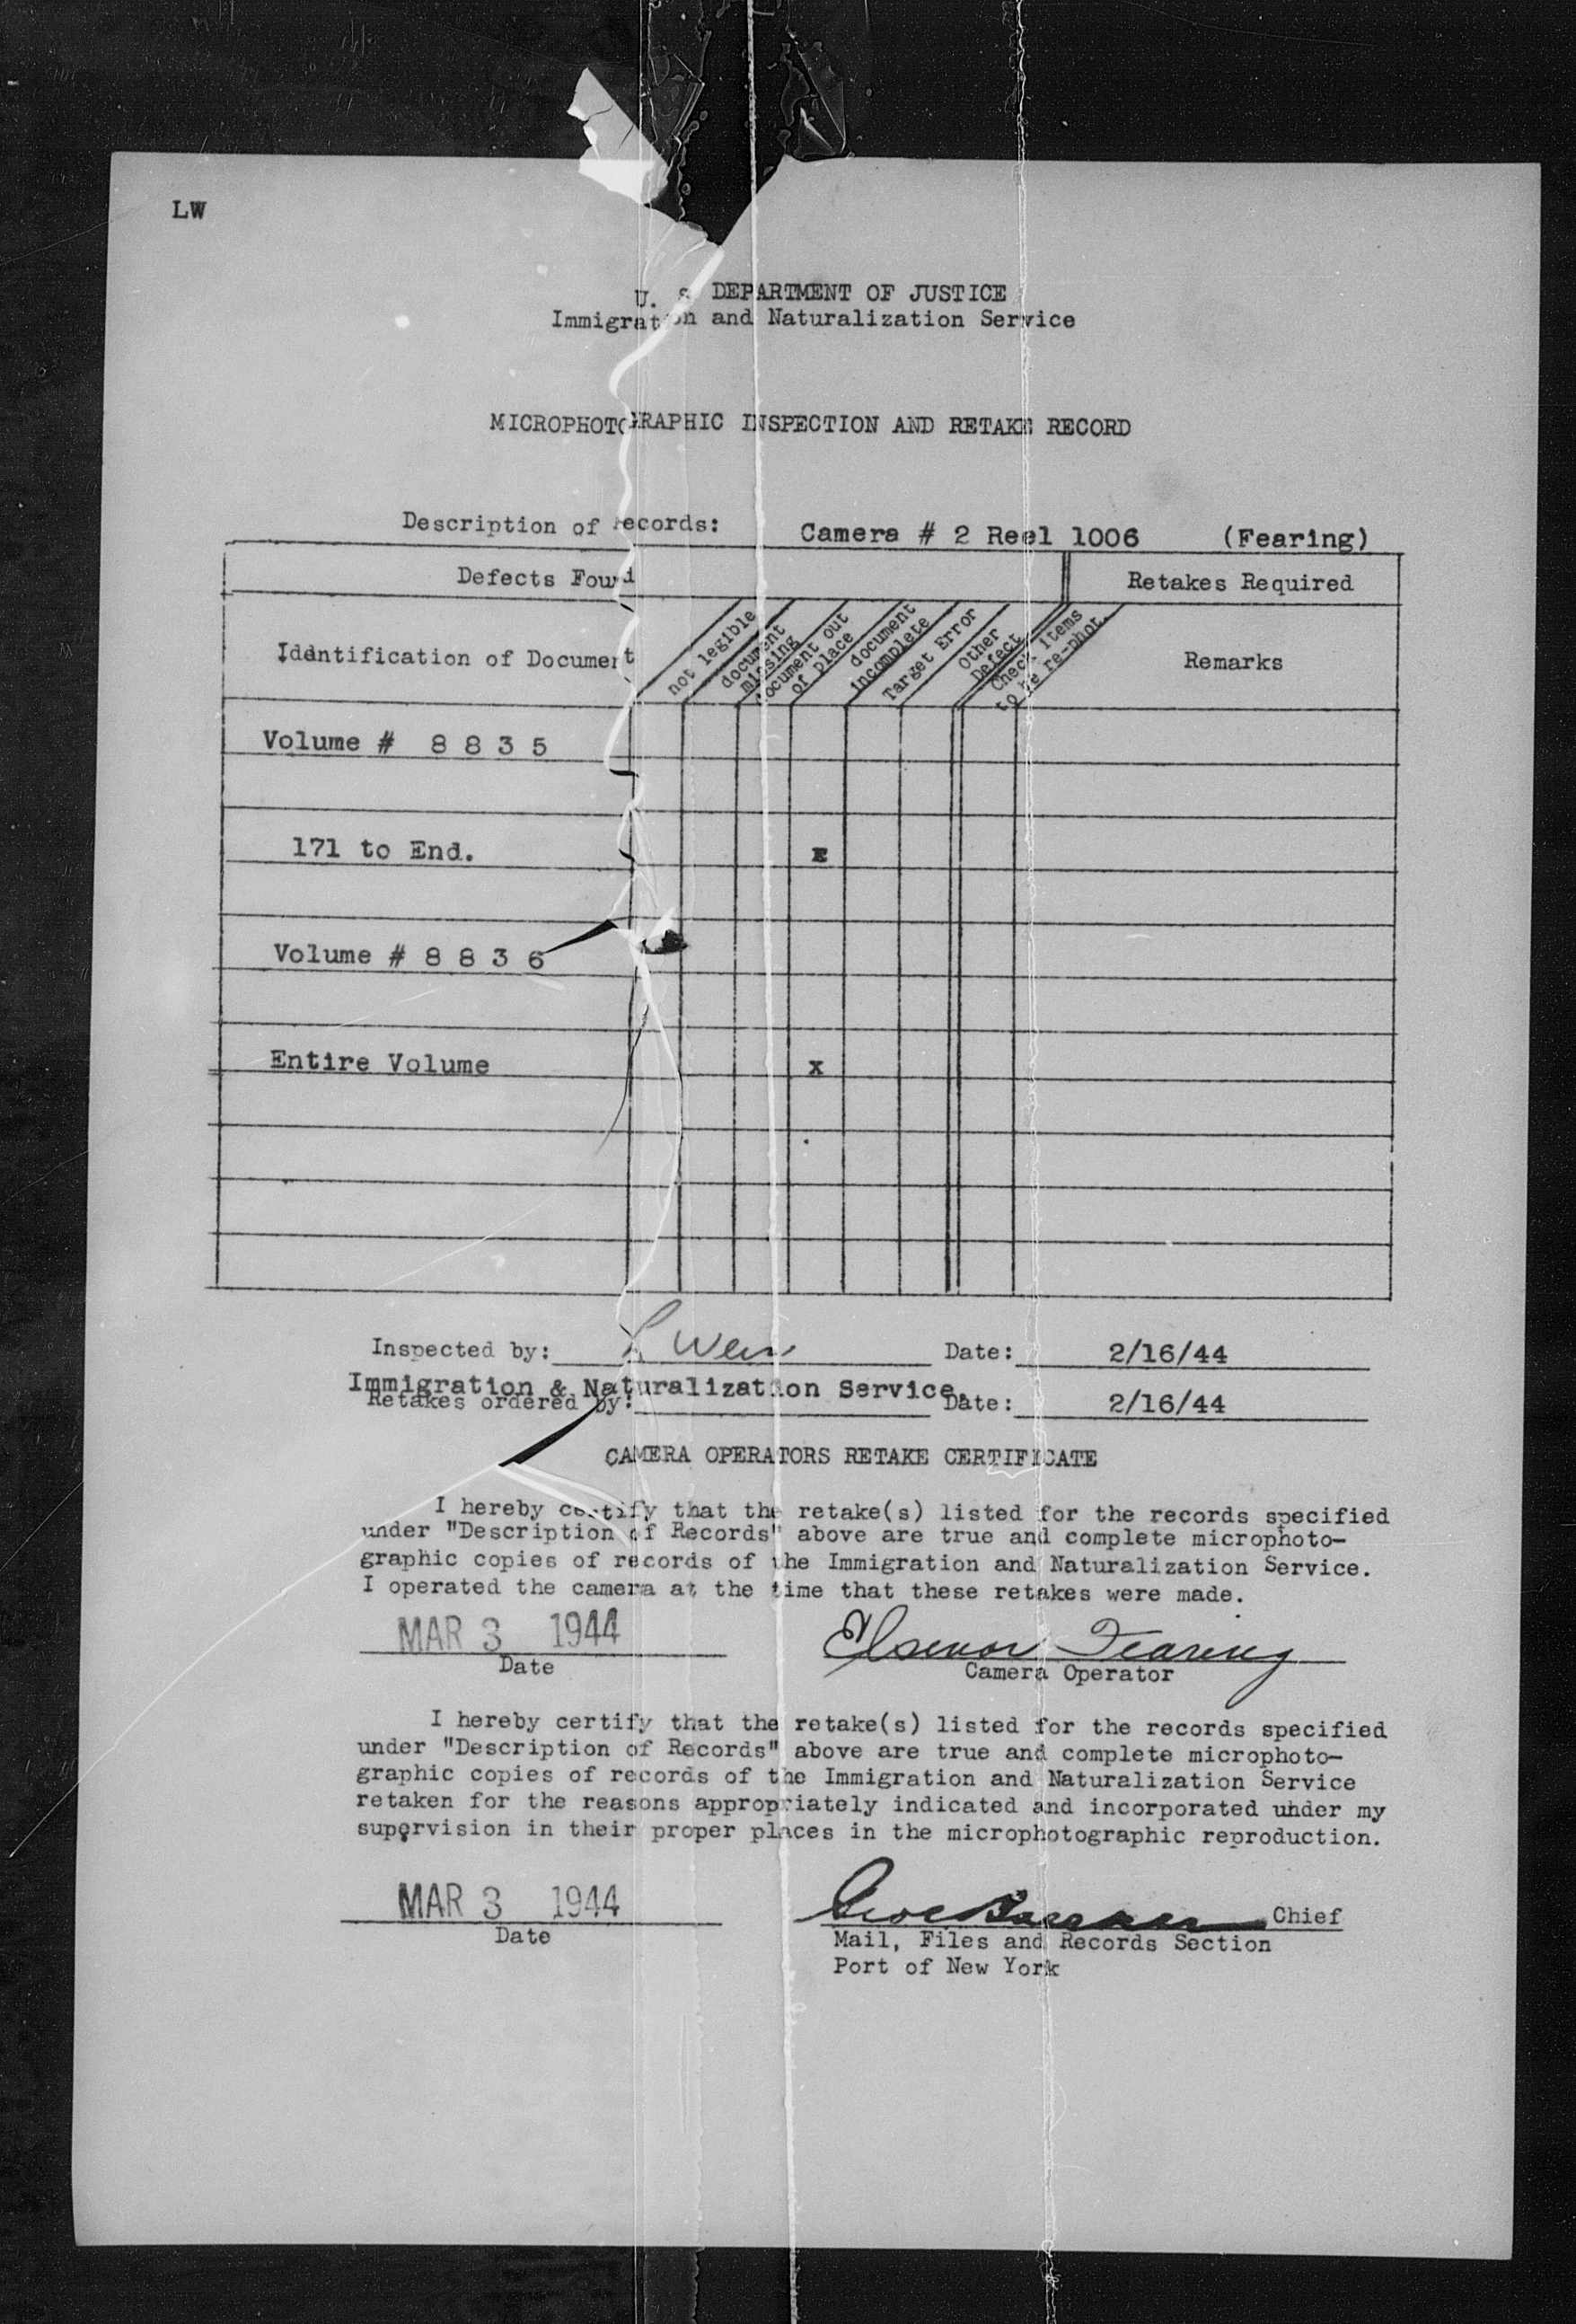 LW
U. S DEPARTMENT OF JUSTICE
Immigration and Naturalization Service
MICROPHOTOGRAPHIC INSPECTION AND RETAKE RECORD
Description of records: Camera # 2 Reel 1006 (Fearing)
Defects Found Retakes Required
Identification of Document
not legible
document missing
document out of place
document incomplete
Target Error
Other Defect
Check Items to be re-phot.
Remarks
Volume # 8 8 3 5
171 to End.
Volume # 8 8 3 6
Entire Volume X
Inspected by: L Wein Date: 2/16/44
Immigration & Naturalization Service.
Retakes ordered by: Date: 2/16/44
CAMERA OPERATORS RETAKE CERTIFICATE
I hereby certify that the retake(s) listed for the records specified
under "Description of Records" above are true and complete microphoto-
graphic copies of records of the Immigration and Naturalization Service.
I operated the camera at the time that these retakes were made.
MAR 3 1944 Elsenor Fearing
Date Camera Operator
I hereby certify that the retake(s) listed for the records specified
under "Description of Records" above are true and complete microphoto-
graphic copies of records of the Immigration and Naturalization Service
retaken for the reasons appropriately indicated and incorporated under my
supervision in their proper places in the microphotographic reproduction.
MAR 3 1944 Chief
Date Mail, Files and Records Section
Port of New York